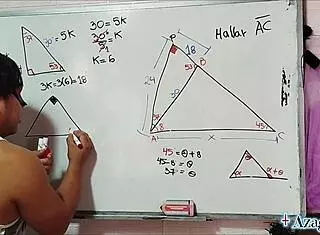 30 = 5K
30 = K
5
K = 6
37
30 = 5K
53
3K = 3(6) = 18
Hallar AC
18
53
B
24
30
A
8
x
45
C
45 = θ + 8
45 - 8 = θ
37 = θ
θ
α
α+θ
+Azag